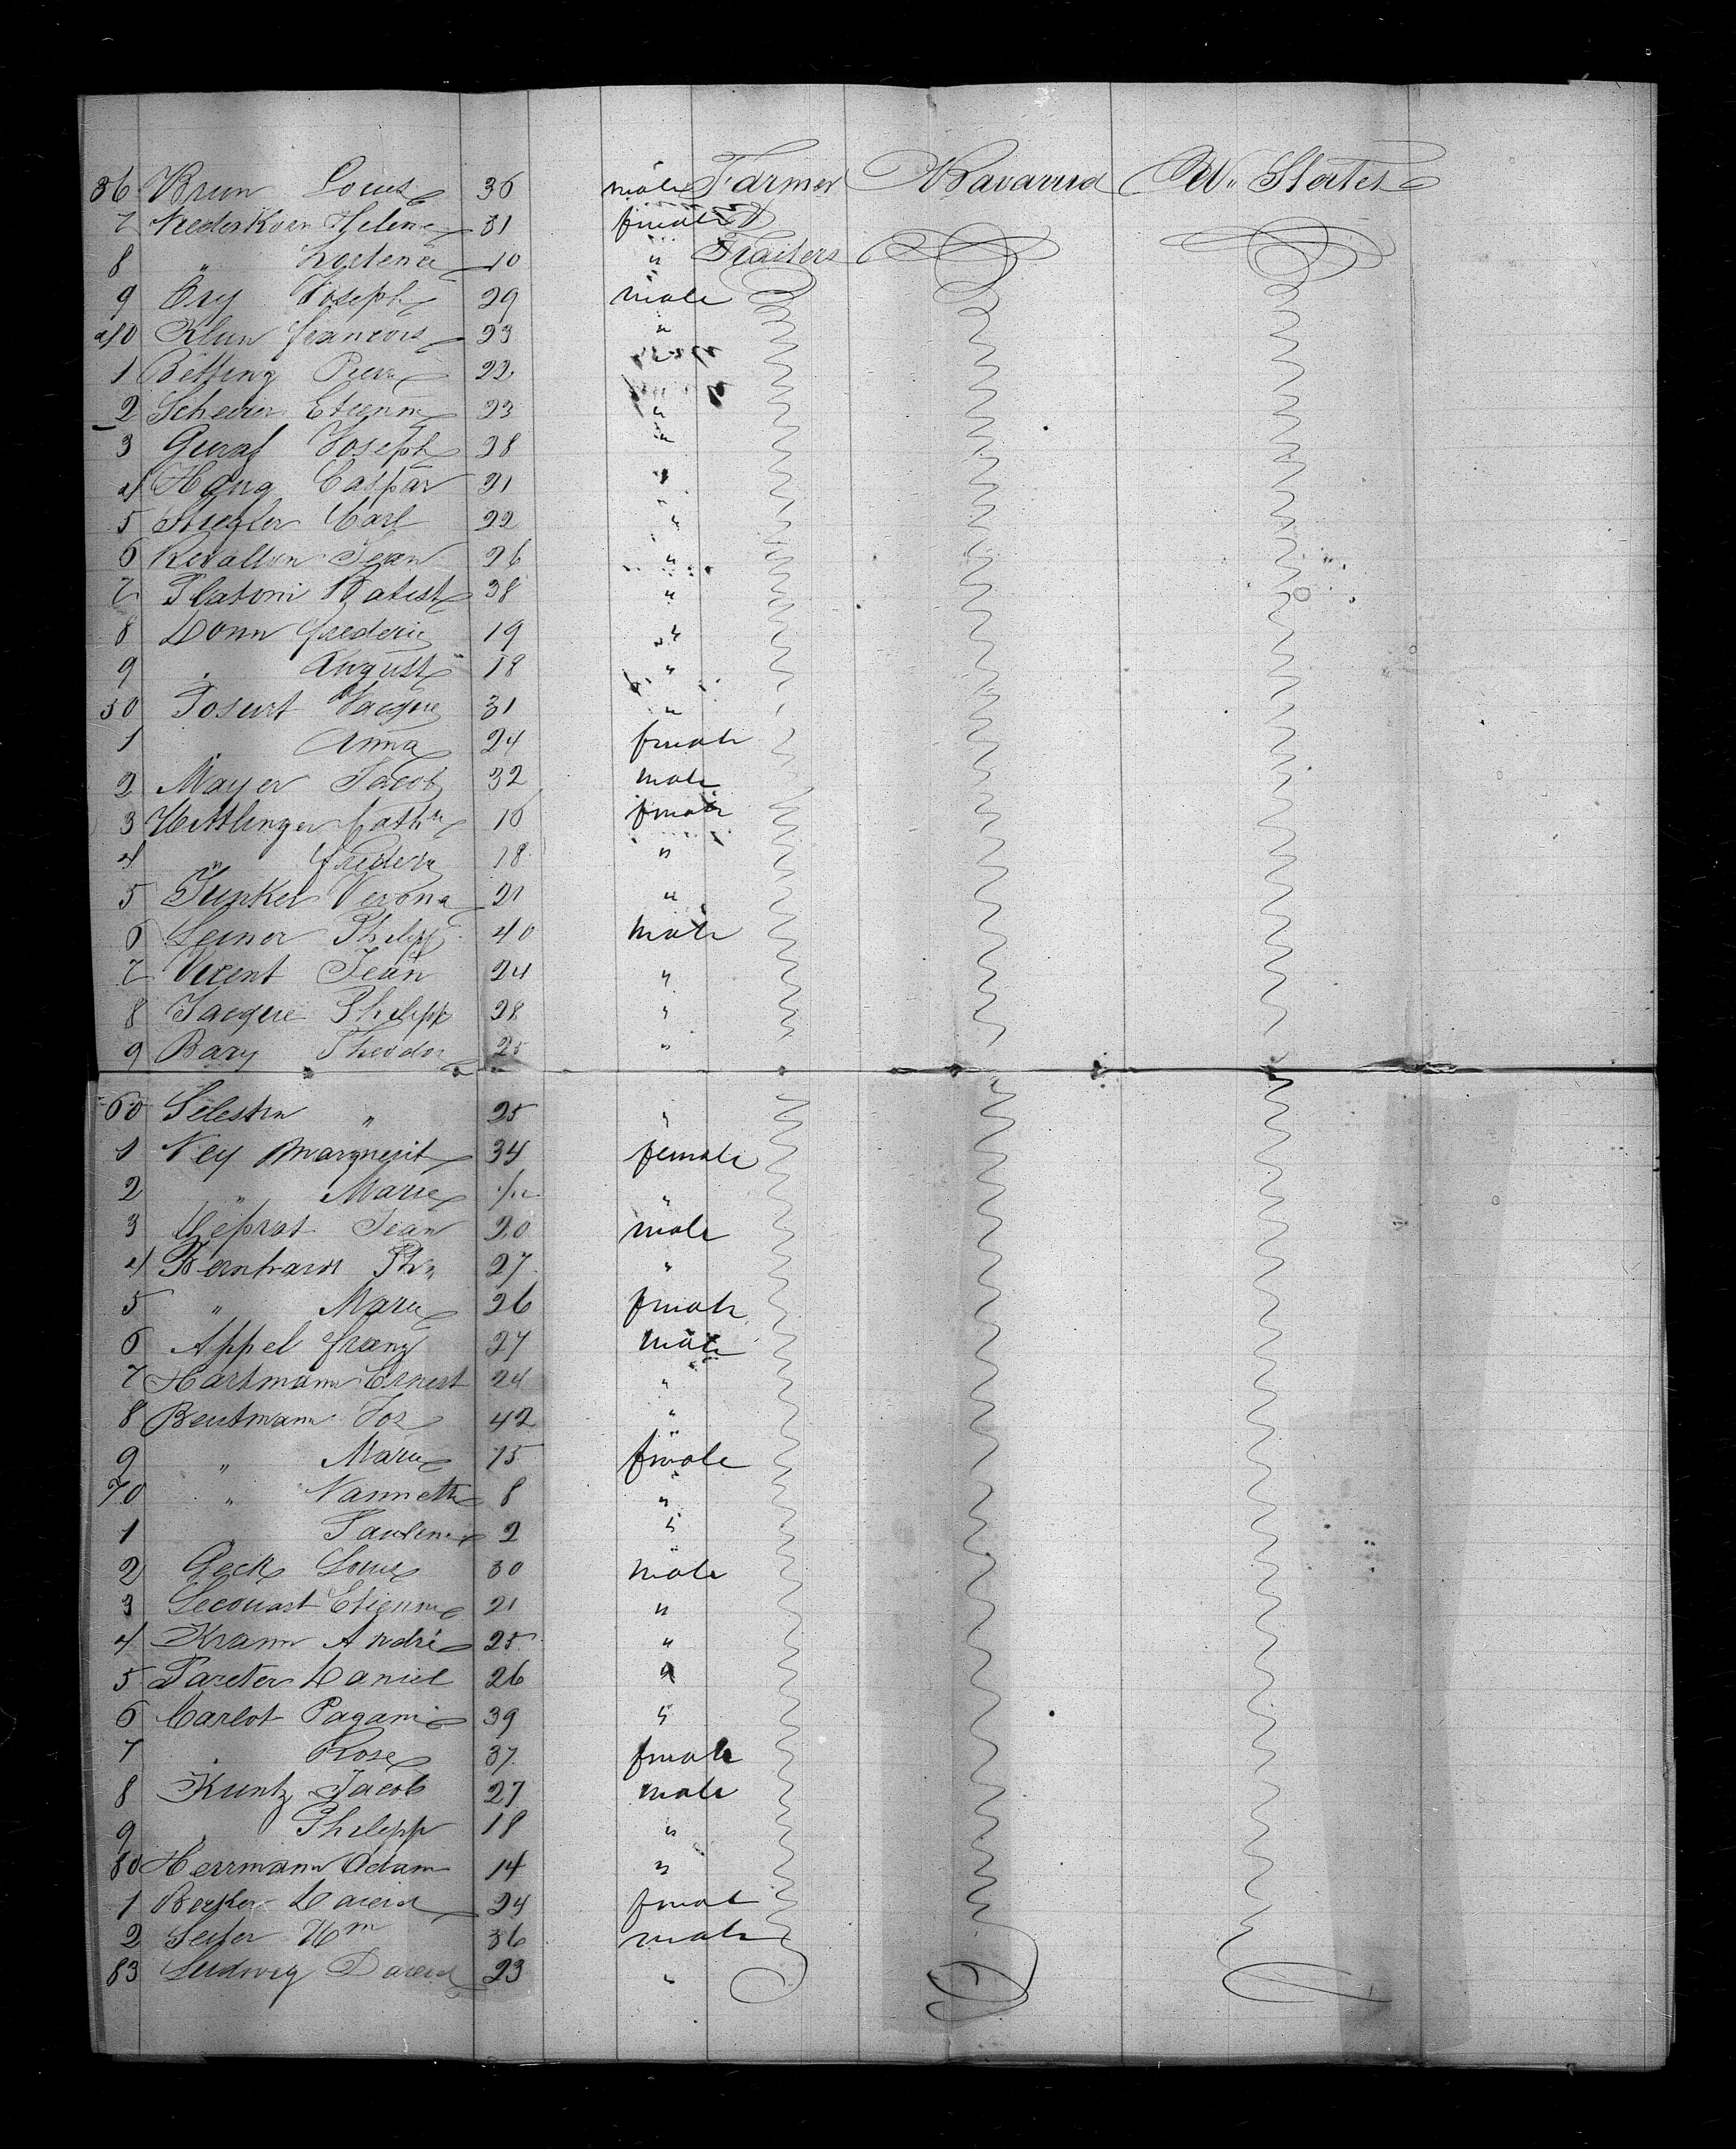 36 Brun Louis 36 male Farmer Bavaria U. States
7 Nederkorn Helene 31 female
8 " Hortense 10 " Traders
9 Ory Joseph 29 male
40 Klein francois 23 "
1 Betting Pierre 22 "
2 Scheuer Etienne 23 "
3 Gueraf Joseph 28 "
4 Haug Caspar 21 "
5 Stiegler Carl 22 "
6 Revallon Jean 26 "
7 Platoni Batist 38 "
8 Donn frederic 19 "
9 " August 18 "
50 Posurt Jacque 31 "
1 " Anna 24 female
2 Mayer Jacob 32 male
3 Hettlinger Cath. 16 female
4 " frider 18 "
5 Junker Verona 21 "
6 Leiner Philipp 40 male
7 Virent Jean 24 "
8 Jacque Philipp 28 "
9 Bary Theodor 25 "
60 Selestin " 25 "
1 Ney Marguerit 34 female
2 " Marie "
3 Deprat Jean 20 male
4 Bernhardt Ph. 27 "
5 " Marie 26 female
6 Appel franz 27 male
7 Hartmann Ernest 24 "
8 Beutmann Jos 42 "
9 " Marie 15 female
70 " Nannette 8 "
1 Pauline 2 "
2 Geck Louis 30 male
3 Lecouast Etienne 21 "
4 Kramm André 25 "
5 Pareter Daniel 26 "
6 Carlot Pagani 39 "
7 " Rose 37 female
8 Kuntz Jacob 27 male
9 " Philipp 18 "
80 Herrmann Adam 14 "
1 Becker David 24 female
2 Seiler Wm 36 male
83 Ludwig David 23 "